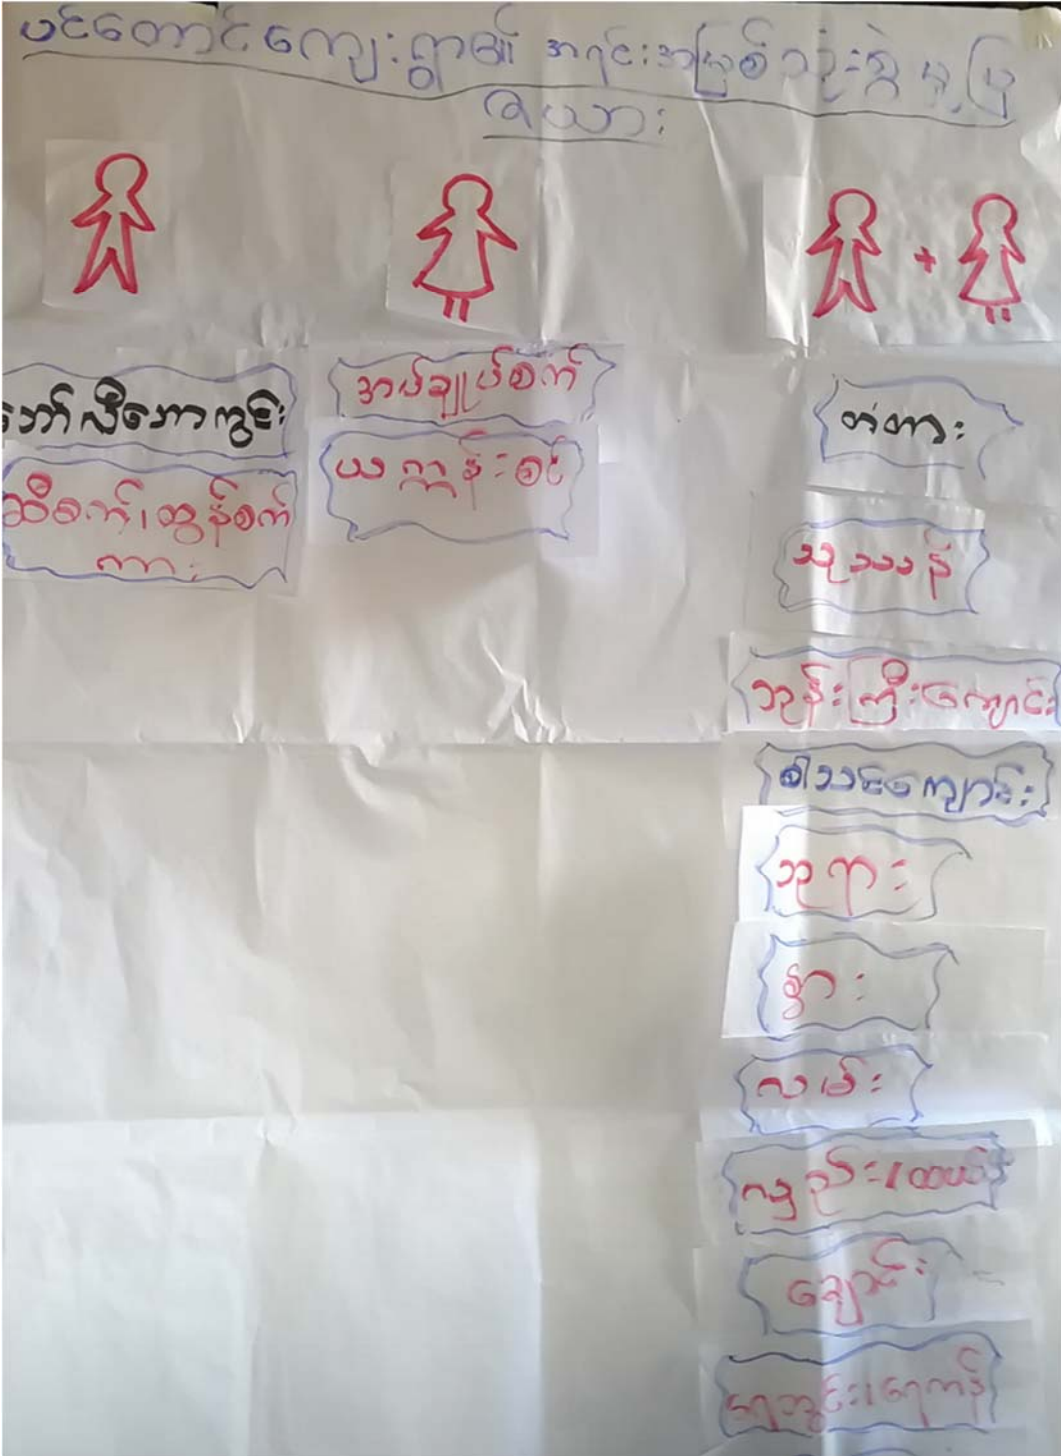 ပင်တောင်ကျေးရွာ၏ အရင်းအမြစ် သုံးစွဲမှုပြ
ဇယား
ဘော်လီဘောကွင်း
ဆီစက်၊ထွန်စက်
ကား
အပ်ချုပ်စက်
ယက္ကန်းစင်
တံတား
သုသာန်
ဘုန်းကြီးကျောင်း
စါသင်ကျောင်း
ဘုရား
နွား
လမ်း
လှည်း၊ထယ်
ချောင်း
ရေတွင်း၊ရေကန်